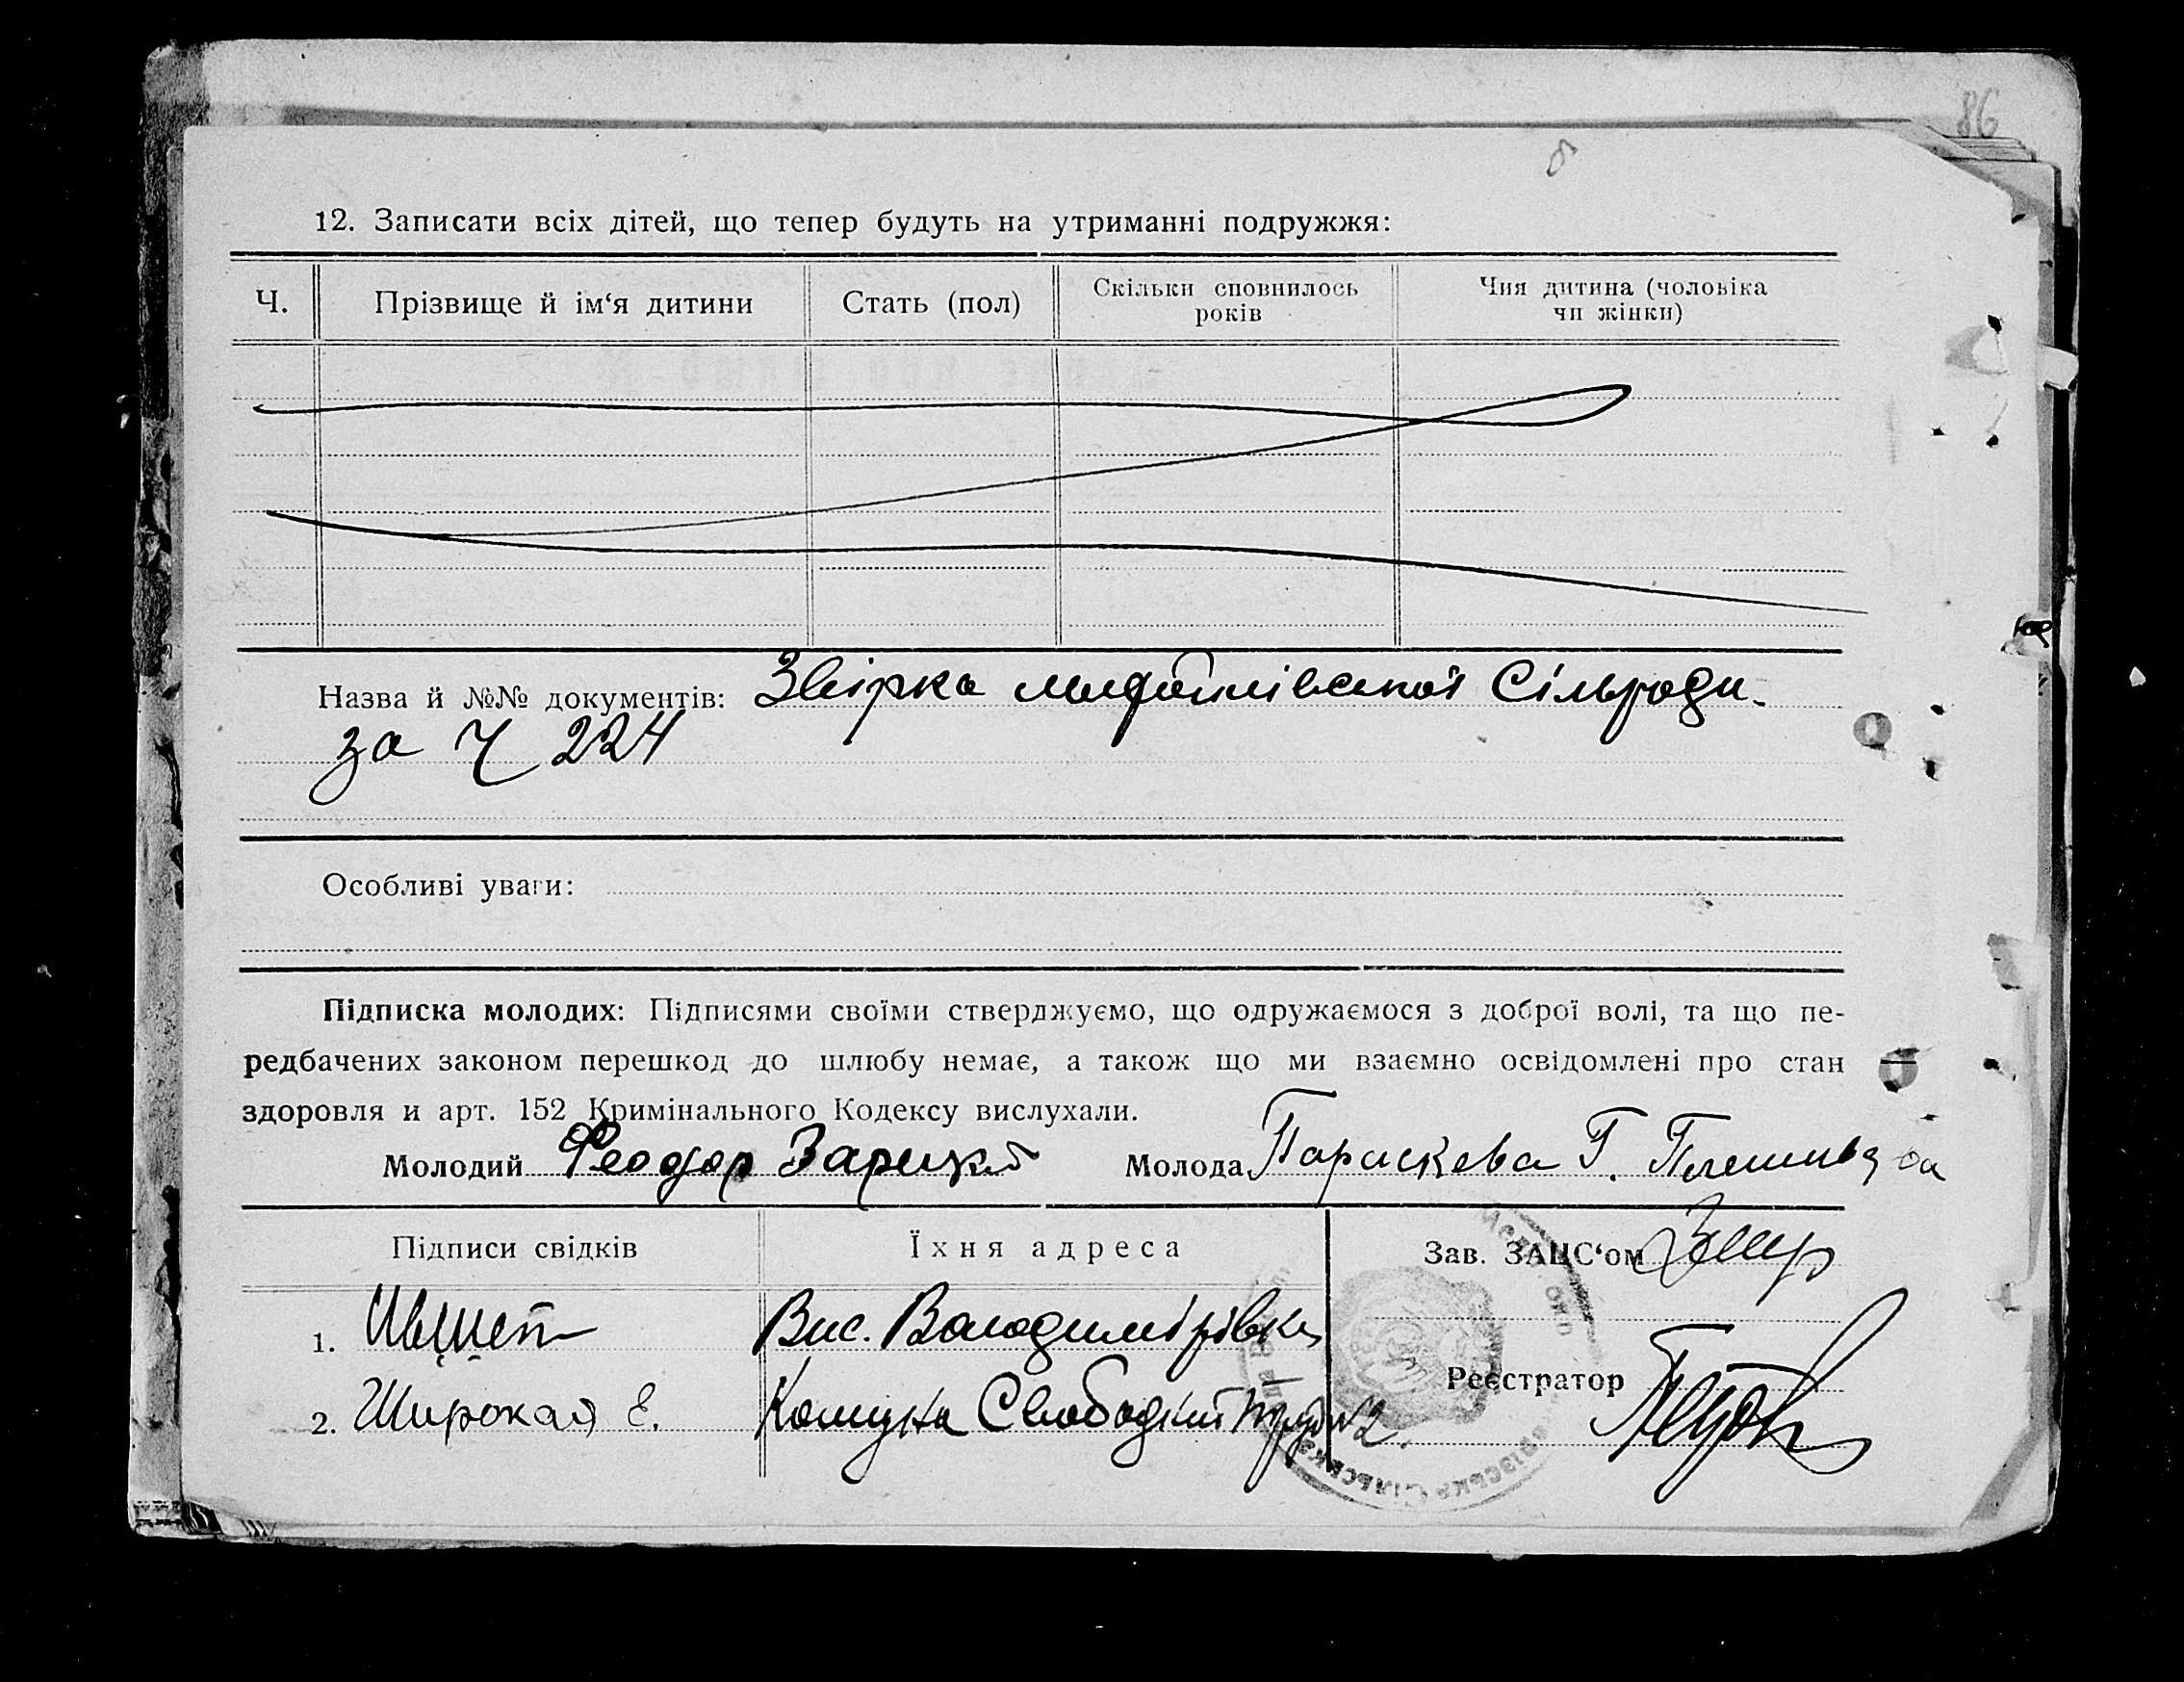 86
12. Записати всіх дітей, що тепер будуть на утриманні подружжя:
Ч. Прізвище й ім‘я дитини Стать (пол) Скільки сповнилось років Чия дитина (чоловіка чи жінки)
Назва й №№ документів: Звірка Сільради.
за Ч 224
Особливі уваги:
Підписка молодих: Підписями своїми стверджуємо, що одружаємося з доброї волі, та що пе-
редбачених законом перешкод до шлюбу немає, а також що ми взаємно освідомлені про стан
здоровля и арт. 152 Кримінального Кодексу вислухали.
Молодий Феодор Зарицкий Молода Параскева Г.
Підписи свідків Їхня адреса Зав. ЗАЦС‘ом
1. Вис. Володимірівка
Реєстратор
2. Широкая Е. Комуна Свободний труд №2.